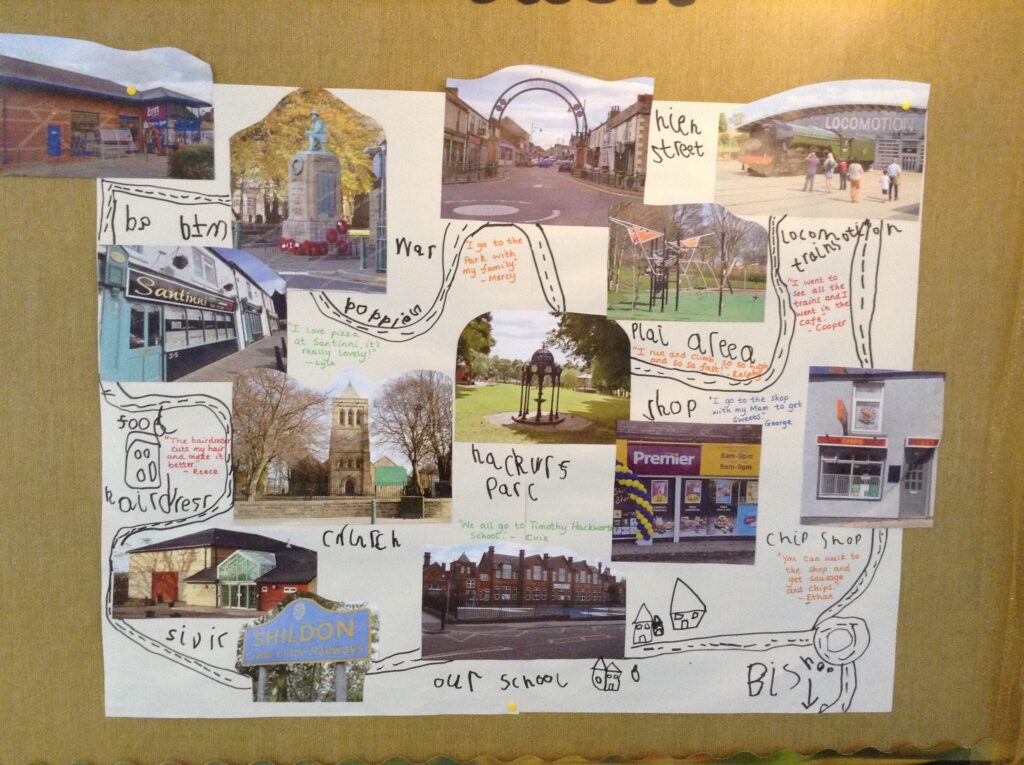 LOCOMOTION
high
street
War
"I go to the
Park with
my family"
- Mercy
locomotion
trains
"I went to
see all the
trains and I
went in the
cafe."
- Cooper
Santinni
3-5
poppies
"I love pizza
at Santinni, it's
really lovely!"
- Lyla
plai areea
"I run and climb, so so high
and so so fast!" - Ralphy
shop
"I go to the shop
with my Mam to get
sweets."
George
Premier
8am-9pm
9am-9pm
"The hairdresser
cuts my hair
and make it
better."
- Reece
hairdresr
church
hackurs
parc
"We all go to Timothy Hackworth
School." - Evie
chip shop
"You can walk to
the shop and
get sausage
and chips."
- Ethan
sivic
SHILDON
Cradle of the Railways
our school
Bishop